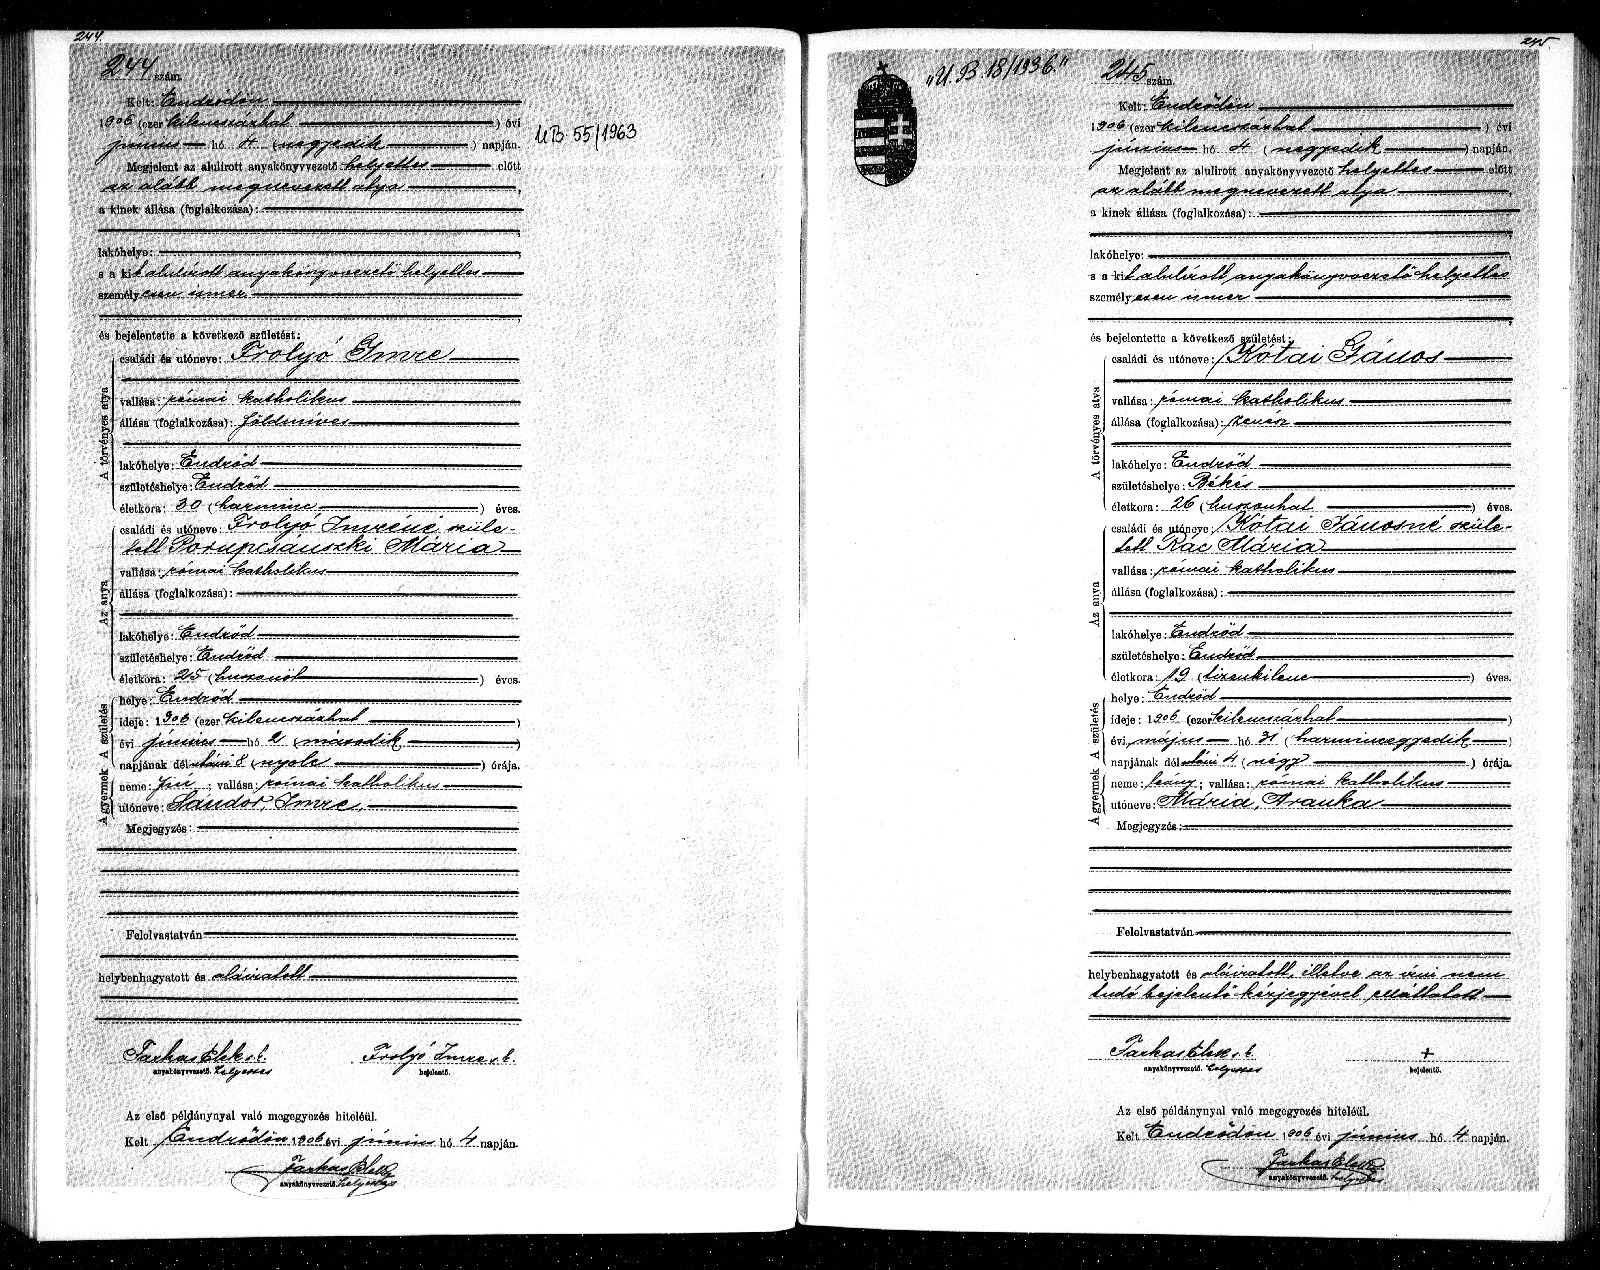 244.
244 szám.
Kelt: Endrődön
1906 (ezer kilencszázhat ) évi
június hó 4 (negyedik ) napján.
Megjelent az alulirott anyakönyvvezető helyettes előtt
az alább megnevezett atya ,
a kinek állása (foglalkozása):
,
lakóhelye: ,
s a kit alulírott anyakönyvvezető helyettes
személyesen ismer.
,
és bejelentette a következő születést:
A törvényes atya
családi és utóneve: Frolyó Imre
vallása: római katholikus
állása (foglalkozása): földmíves
lakóhelye: Endrőd
születéshelye: Endrőd
életkora: 30 (harminc ) éves.
Az anya
családi és utóneve: Frolyó Imréné, szüle-
tett Porupcsánszki Mária
vallása: római katholikus
állása (foglalkozása):
lakóhelye: Endrőd
születéshelye: Endrőd
életkora: 25 (huszonöt ) éves.
A gyermek A születés
helye: Endrőd
ideje: 1906 (ezer kilencszázhat )
évi június hó 2 (második )
napjának délutáni 8 (nyolc ) órája.
neme: fiú ; vallása: római katholikus
utóneve: Sándor, Imre.
Megjegyzés:
Felolvastatván
helybenhagyatott és aláiratott
Farkas Elek s. k. Frolyó Imre s. k.
anyakönyvvezető. helyettes bejelentő.
Az első példánynyal való megegyezés hiteléül.
Kelt Endrődön 1906 évi június hó 4 napján.
Farkas Elek
anyakönyvvezető helyettes
UB. 55/1963
245.
„U. B. 18/1936."
245 szám.
Kelt: Endrődön
1906 (ezer kilencszázhat ) évi
június hó 4 (negyedik ) napján.
Megjelent az alulirott anyakönyvvezető helyettes előtt
az alább megnevezett atya ,
a kinek állása (foglalkozása):
,
lakóhelye: ,
s a kit alulírott, anyakönyvvezető helyettes
személyesen ismer
,
és bejelentette a következő születést:
A törvényes atya
családi és utóneve: Kótai János
vallása: római katholikus
állása (foglalkozása): zenész
lakóhelye: Endrőd
születéshelye: Békés
életkora: 26 (huszonhat ) éves.
Az anya
családi és utóneve: Kótai Jánosné szüle-
tett Rác Mária
vallása: római katholikus
állása (foglalkozása):
lakóhelye: Endrőd
születéshelye: Endrőd
életkora: 19 (tizenkilenc ) éves.
A gyermek A születés
helye: Endrőd
ideje: 1906 (ezer kilencszázhat )
évi május hó 31 (harmincegyedik )
napjának délutáni 4 (négy ) órája.
neme: leány ; vallása: római katholikus
utóneve: Mária, Aranka
Megjegyzés:
Felolvastatván
helybenhagyatott és aláiratott, illetve az írni nem
tudó bejelentő kézjegyével elláttatott
Farkas Elek s. k. +
anyakönyvvezető. helyettes bejelentő.
Az első példánynyal való megegyezés hiteléül.
Kelt Endrődön 1906 évi június hó 4 napján.
Farkas Elek
anyakönyvvezető. helyettes